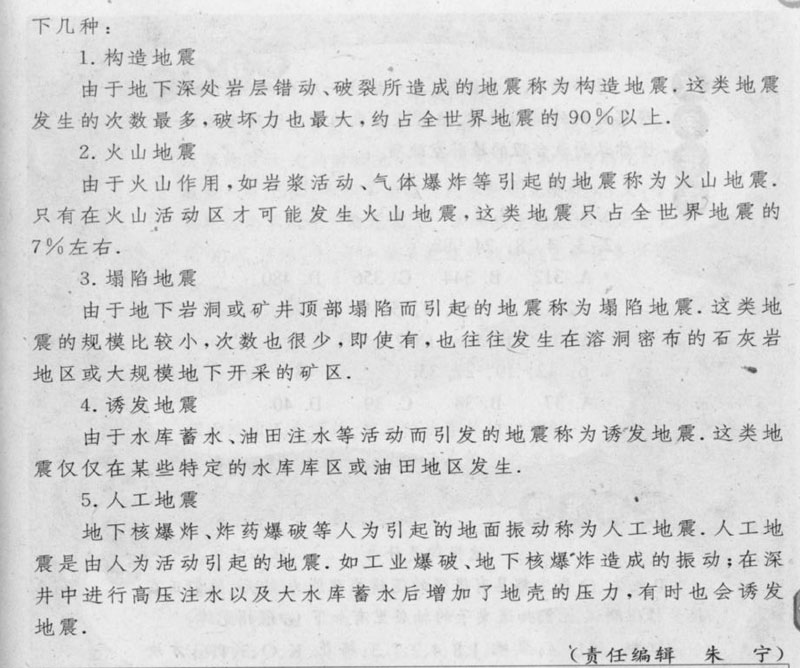 下几种：
1.构造地震
由于地下深处岩层错动、破裂所造成的地震称为构造地震.这类地震
发生的次数最多,破坏力也最大,约占全世界地震的90%以上.
2.火山地震
由于火山作用,如岩浆活动、气体爆炸等引起的地震称为火山地震.
只有在火山活动区才可能发生火山地震,这类地震只占全世界地震的
7%左右.
3.塌陷地震
由于地下岩洞或矿井顶部塌陷而引起的地震称为塌陷地震.这类地
震的规模比较小,次数也很少,即使有,也往往发生在溶洞密布的石灰岩
地区或大规模地下开采的矿区.
4.诱发地震
由于水库蓄水、油田注水等活动而引发的地震称为诱发地震.这类地
震仅仅在某些特定的水库库区或油田地区发生.
5.人工地震
地下核爆炸、炸药爆破等人为引起的地面振动称为人工地震.人工地
震是由人为活动引起的地震.如工业爆破、地下核爆炸造成的振动;在深
井中进行高压注水以及大水库蓄水后增加了地壳的压力,有时也会诱发
地震.
(责任编辑 朱 宁)